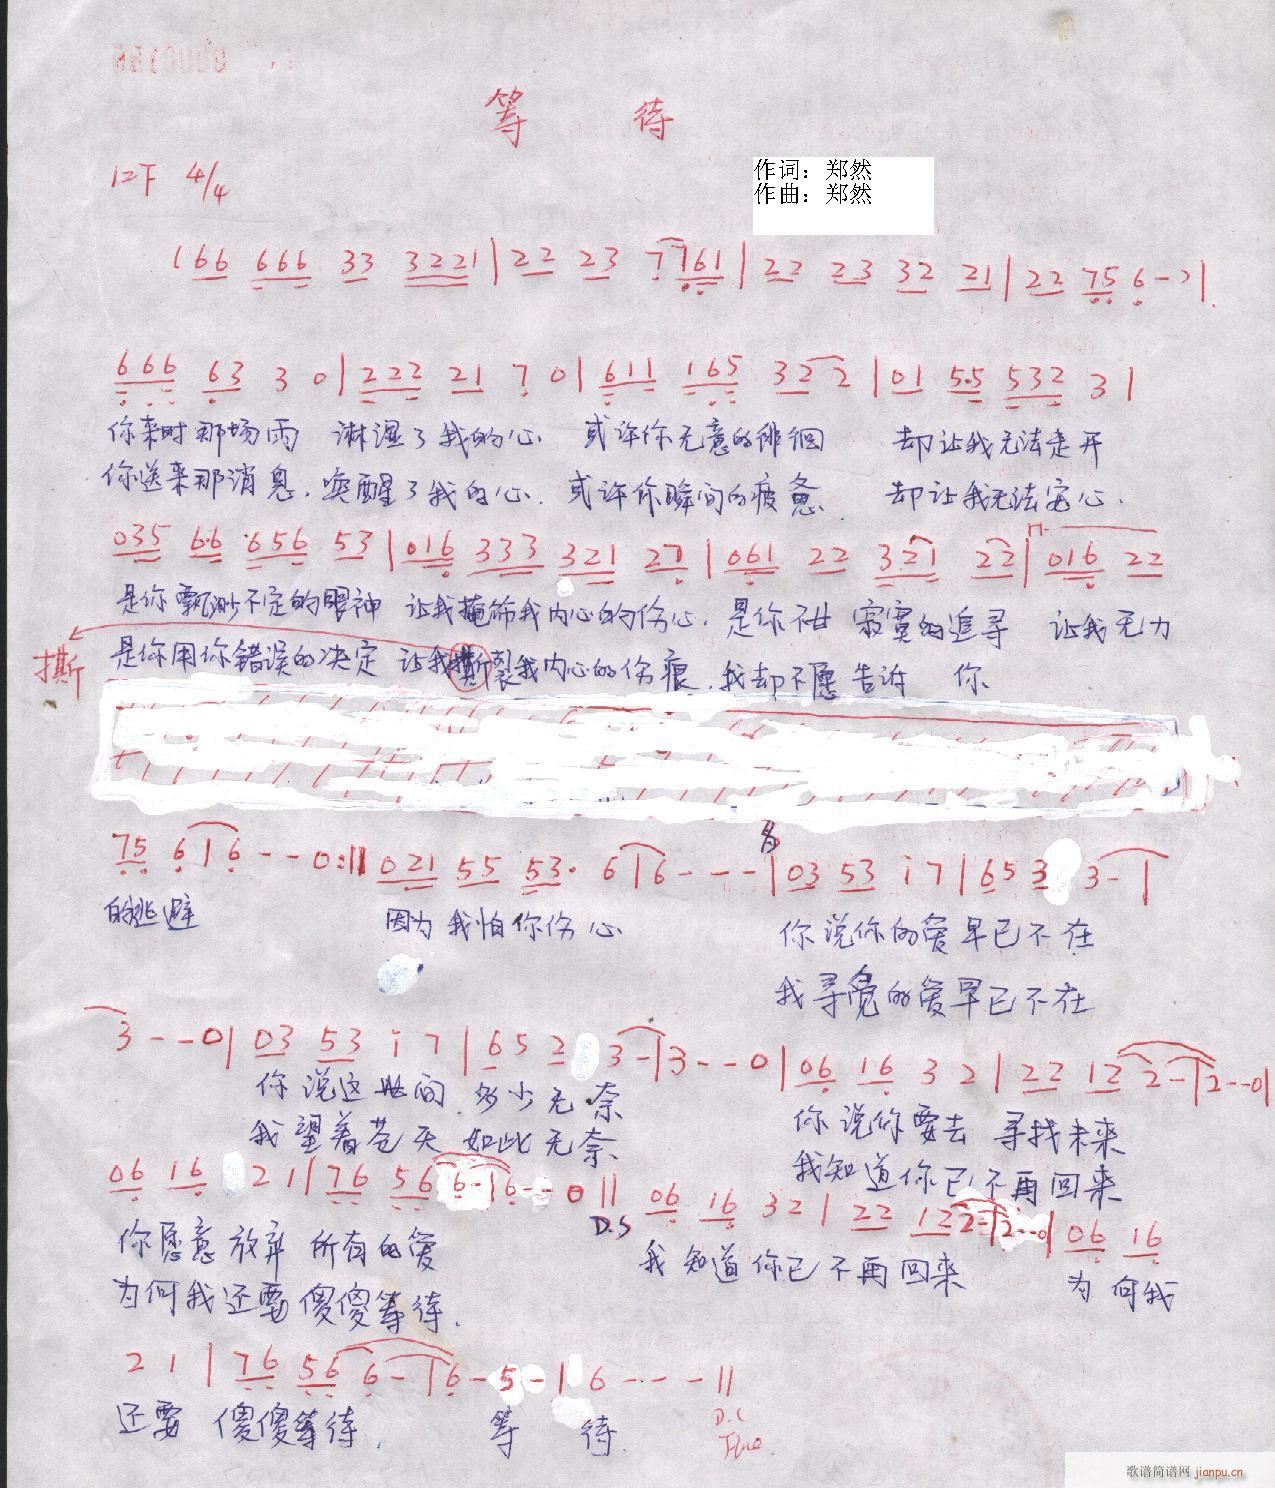 等 待
1=F 4/4
作词：郑然
作曲：郑然
166 666 33 3221 | 22 23 7 761 | 22 23 32 21 | 22 75 6 - - |
666 63 3 0 | 222 21 7 0 | 611 165 32 2 | 01 5·5 532 3 |
你来时那场雨 淋湿了我的心 或许你无意的徘徊 却让我无法走开
你送来那消息. 唤醒了我的心. 或许你瞬间的疲惫 却让我无法安心.
035 6·6 656 53 | 016 333 321 27 | 061 22 321 22 | 016 22
是你飘渺不定的眼神 让我掩饰我内心的伤心. 是你不甘 寂寞的追寻 让我无力
撕
是你用你错误的决定 让我撕裂我内心的伤痕. 我却不愿告诉 你
75 6 | 6 - - 0 :|| 021 55 53· 6 | 6 - - - | 03 53 i 7 | 653 3 - |
的逃避 因为我怕你伤心 你说你的爱早已不在
我寻觅的爱早已不在
3 - - 0 | 03 53 i 7 | 652 3 - | 3 - - 0 | 06 16 3 2 | 22 12 2 - | 2 - - 0 |
你说这世间 多少无奈 你说你要去 寻找未来
我望着苍天 如此无奈 我知道你已不再回来
06 16 2 1 | 76 56 6 - | 6 - - 0 || 06 16 3 2 | 22 12 2 - | 2 - - 0 | 06 16
D.S
你愿意放弃 所有的爱 我知道你已不再回来 为何我
为何我还要傻傻等待.
2 1 | 76 56 6 - | 6 - 5 - | 6 - - - ||
还要 傻傻等待. 等 待
D.C
Fine
歌谱简谱网 jianpu.cn